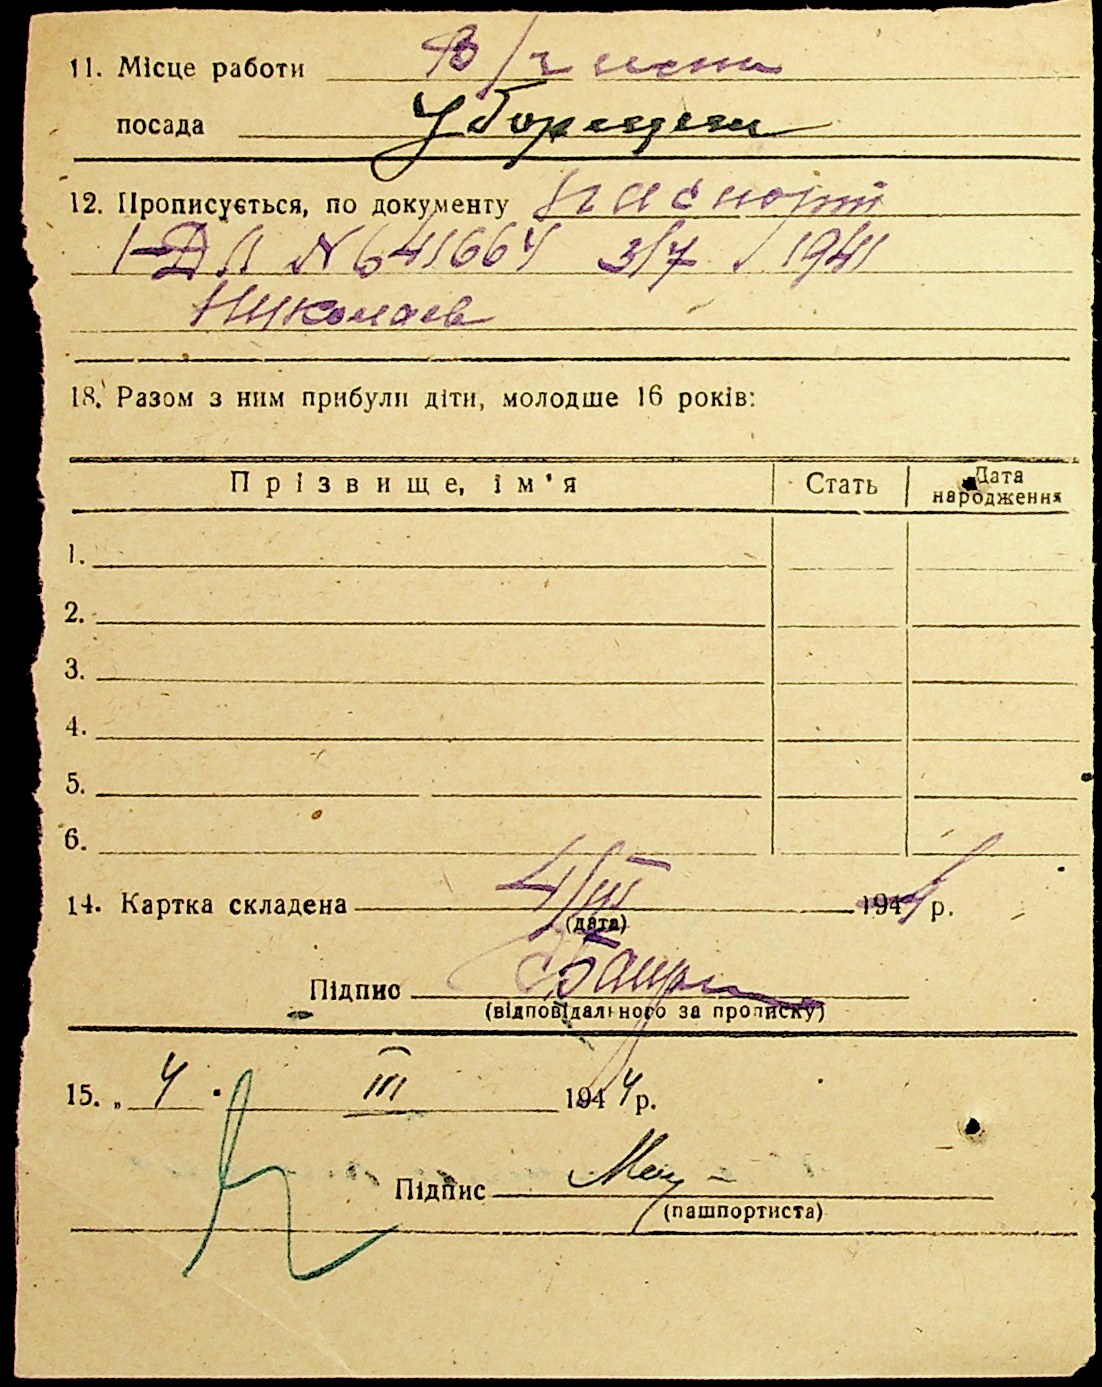 11. Місце работи В/ч
посада Уборщица
12. Прописується, по документу паспорт
І-ДЛ № 641664 3/7 1941
Николаев
18. Разом з ним прибули діти, молодше 16 років:
Прізвище, ім'я Стать Дата народження
1.
2.
3.
4.
5.
6.
14. Картка складена 4/III 1944 р.
(дата)
Підпис
(відповідального за прописку)
15. „ 4 " III 1944 р.
Підпис
(пашпортиста)